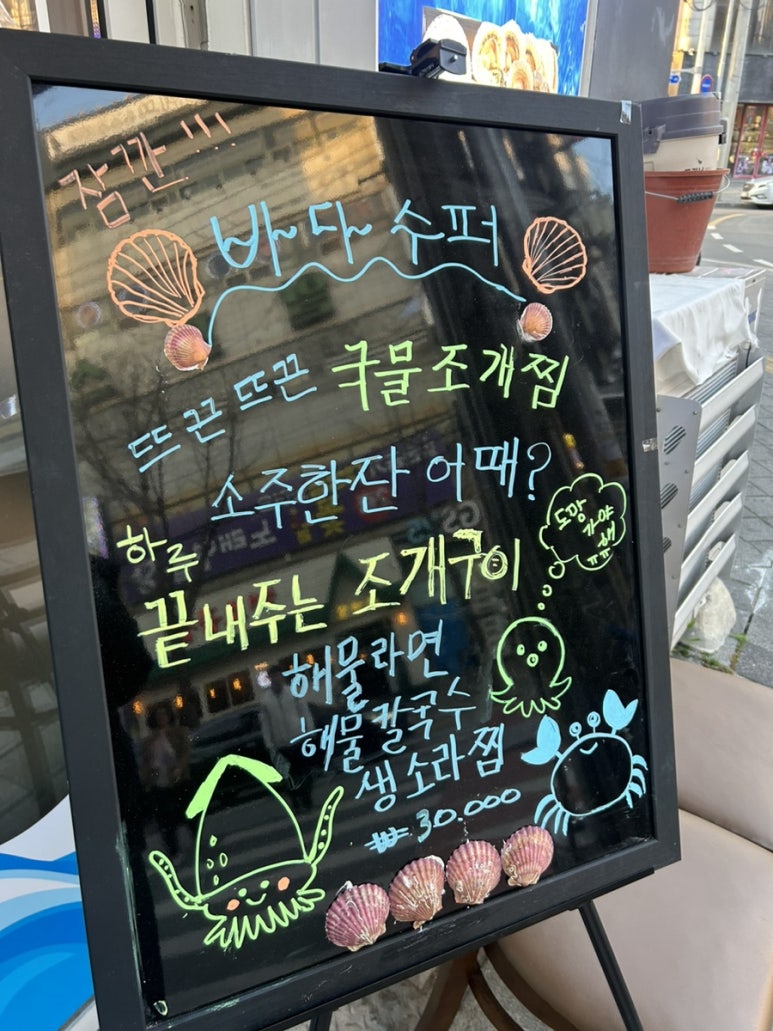 잠깐!!!
바다 수퍼
뜨끈뜨끈 국물조개찜
소주한잔 어때?
도망
가야
해
ㅠㅠ
하루
끝내주는 조개구이
해물라면
해물칼국수
생소라찜
₩30.000